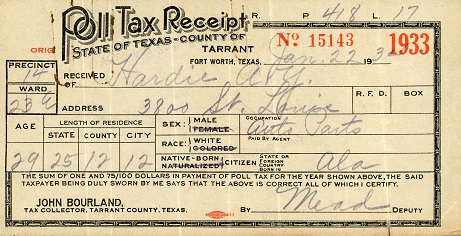 R. P 418 L 17
Poll Tax Receipt
ORIG
STATE OF TEXAS-COUNTY OF
TARRANT
No. 15143 1933
FORT WORTH, TEXAS, Jan. 22 193
PRECINCT 14 RECEIVED Hardie
WARD 23 ADDRESS 3800 St. Louis R. F. D. BOX
AGE LENGTH OF RESIDENCE STATE COUNTY CITY
SEX: MALE FEMALE
RACE: WHITE COLORED
OCCUPATION Auto Parts
PAID BY AGENT
29 25 12 12
NATIVE-BORN NATURALIZED CITIZEN
STATE OR FOREIGN COUNTRY BORN IN Ala
THE SUM OF ONE AND 75/100 DOLLARS IN PAYMENT OF POLL TAX FOR THE YEAR SHOWN ABOVE, THE SAID
TAXPAYER BEING DULY SWORN BY ME SAYS THAT THE ABOVE IS CORRECT ALL OF WHICH I CERTIFY.
JOHN BOURLAND,
TAX COLLECTOR, TARRANT COUNTY, TEXAS.
BY Mead DEPUTY